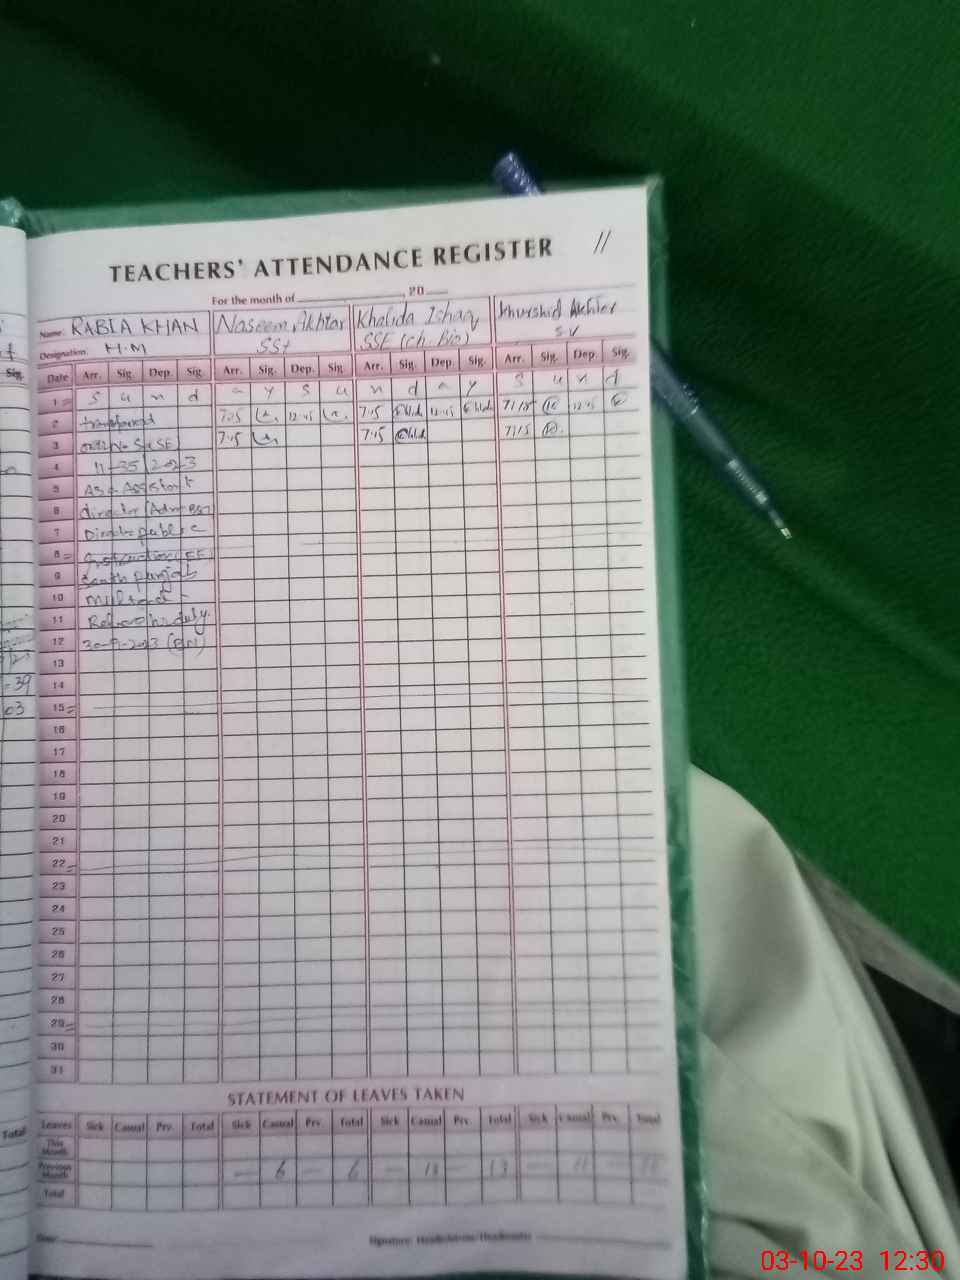 TEACHERS' ATTENDANCE REGISTER 11
For the month of , 20
Name: RABIA KHAN Naseem Akhtar Khalida Ishaq Khurshid Akhter
Designation: H.M SST SSE (ch. Bio) S.V
Sig. Date Arr. Sig. Dep. Sig. Arr. Sig. Dep. Sig. Arr. Sig. Dep. Sig. Arr. Sig. Dep. Sig.
1 S u n d a y S u n d a y S u n d
2 transferred 7:25 12:45 7:15 12:45 7:15 12:45
3 order No S(SE) 7:45 7:45 7:15
4 11-35/2023
5 As a Assistant
6 director (Admn
7 Director public
8 Instruction (EE)
9 South Punjab
10
11 duty.
12 30-9-2023
13
14
-39
15
03
16
17
18
19
20
21
22
23
24
25
26
27
28
29
30
31
STATEMENT OF LEAVES TAKEN
Total Leaves Sick Casual Prv. Total Sick Casual Prv. Total Sick Casual Prv. Total Sick Casual Prv. Total
This Month
Previous Month — 6 — 6 — 13 — 13 — 11 — 11
Total
Signature: Headmistress/Headmaster
03-10-23 12:30